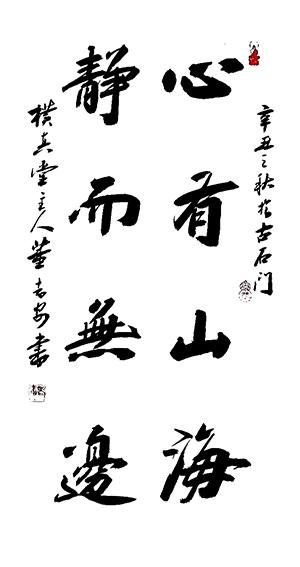 辛丑之秋於古石门
心有山海
静而無邊
朴真堂主人董吉安書